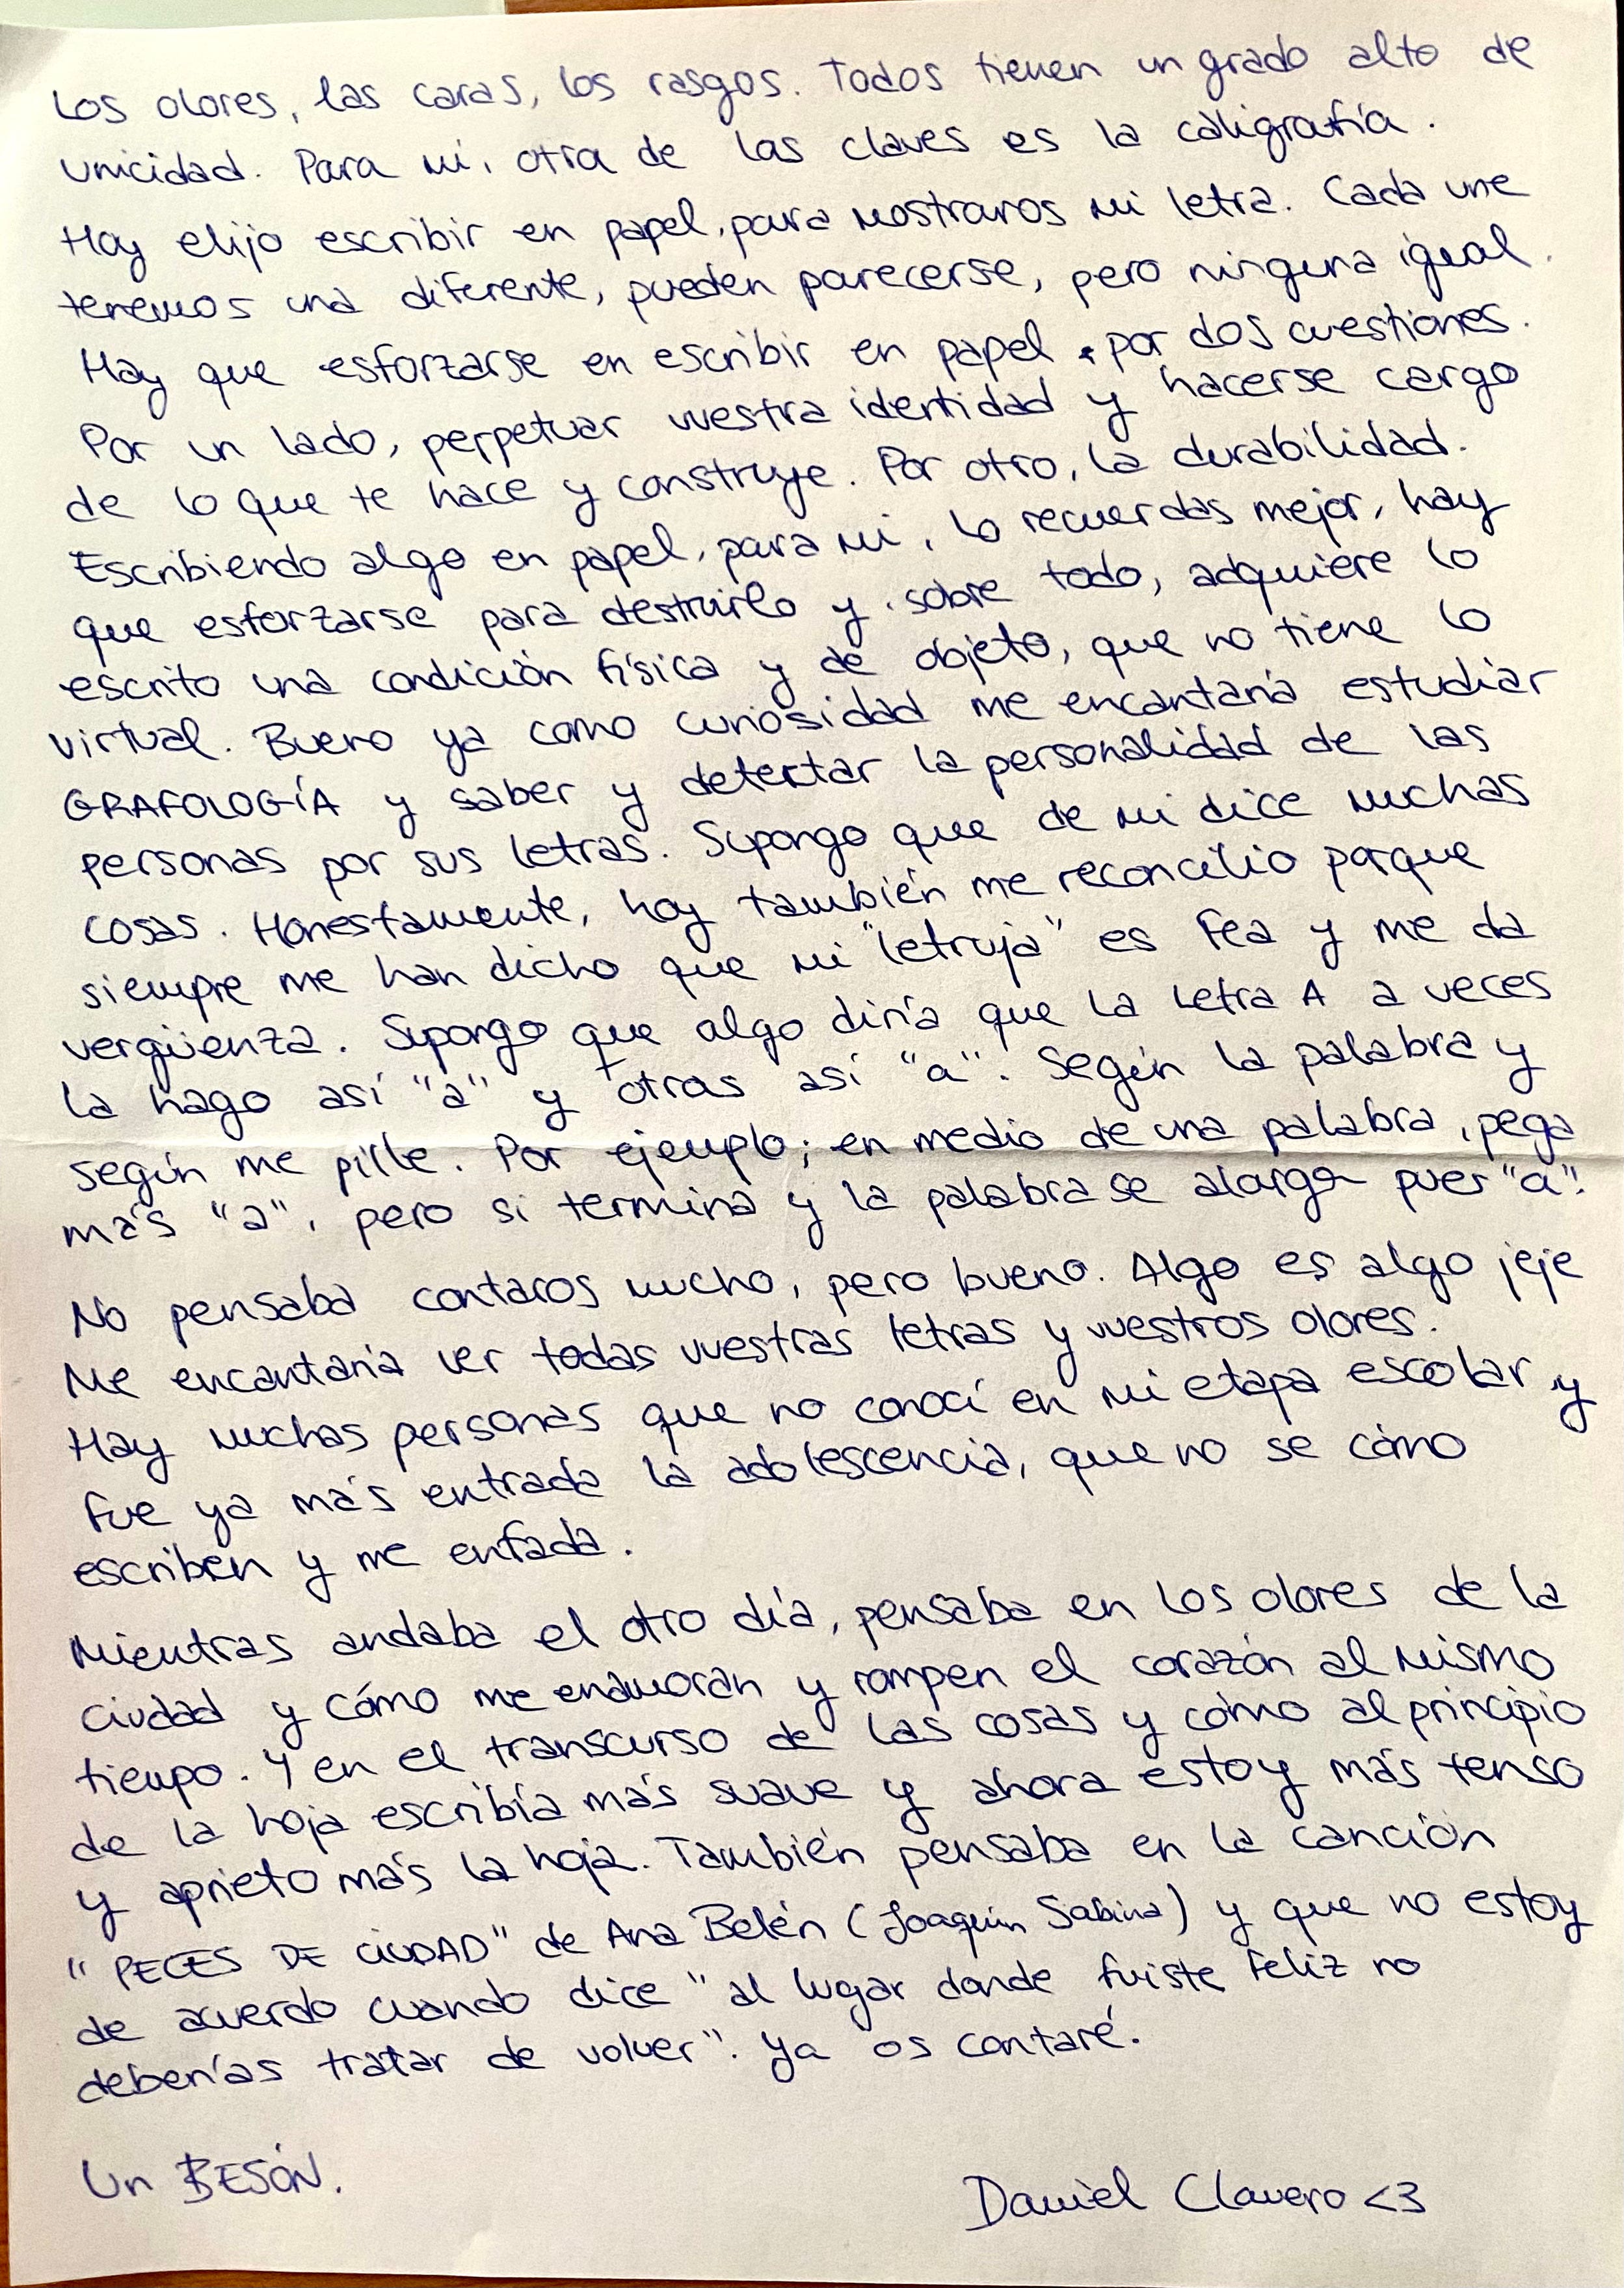 Los olores, las caras, los rasgos. Todos tienen un grado alto de
unicidad. Para mi, otra de las claves es la caligrafía.
Hoy elijo escribir en papel, para mostraros mi letra. Cada une
tenemos una diferente, pueden parecerse, pero ninguna igual.
Hay que esforzarse en escribir en papel por dos cuestiones.
Por un lado, perpetuar vuestra identidad y hacerse cargo
de lo que te hace y construye. Por otro, la durabilidad.
Escribiendo algo en papel, para mi, lo recuerdas mejor, hay
que esforzarse para destruirlo y, sobre todo, adquiere lo
escrito una condición física y de objeto, que no tiene lo
virtual. Bueno ya como curiosidad me encantaría estudiar
GRAFOLOGÍA y saber y detectar la personalidad de las
personas por sus letras. Supongo que de mi dice muchas
cosas. Honestamente, hoy también me reconcilio porque
siempre me han dicho que mi "letruja" es fea y me da
vergüenza. Supongo que algo diría que la letra A a veces
la hago así "a" y otras así "a". Según la palabra y
según me pille. Por ejemplo; en medio de una palabra, pega
más "a", pero si termina y la palabra se alarga pues "a".
No pensaba contaros mucho, pero bueno. Algo es algo jeje
Me encantaría ver todas vuestras letras y vuestros olores.
Hay muchas personas que no conocí en mi etapa escolar y
fue ya más entrada la adolescencia, que no se cómo
escriben y me enfada.
Mientras andaba el otro día, pensaba en los olores de la
ciudad y cómo me enamoran y rompen el corazón al mismo
tiempo. Y en el transcurso de las cosas y cómo al principio
de la hoja escribía más suave y ahora estoy más tenso
y aprieto más la hoja. También pensaba en la canción
"PECES DE CIUDAD" de Ana Belén (Joaquín Sabina) y que no estoy
de acuerdo cuando dice "al lugar donde fuiste feliz no
deberías tratar de volver". Ya os contaré.
Un BESÓN.
Daniel Clavero <3